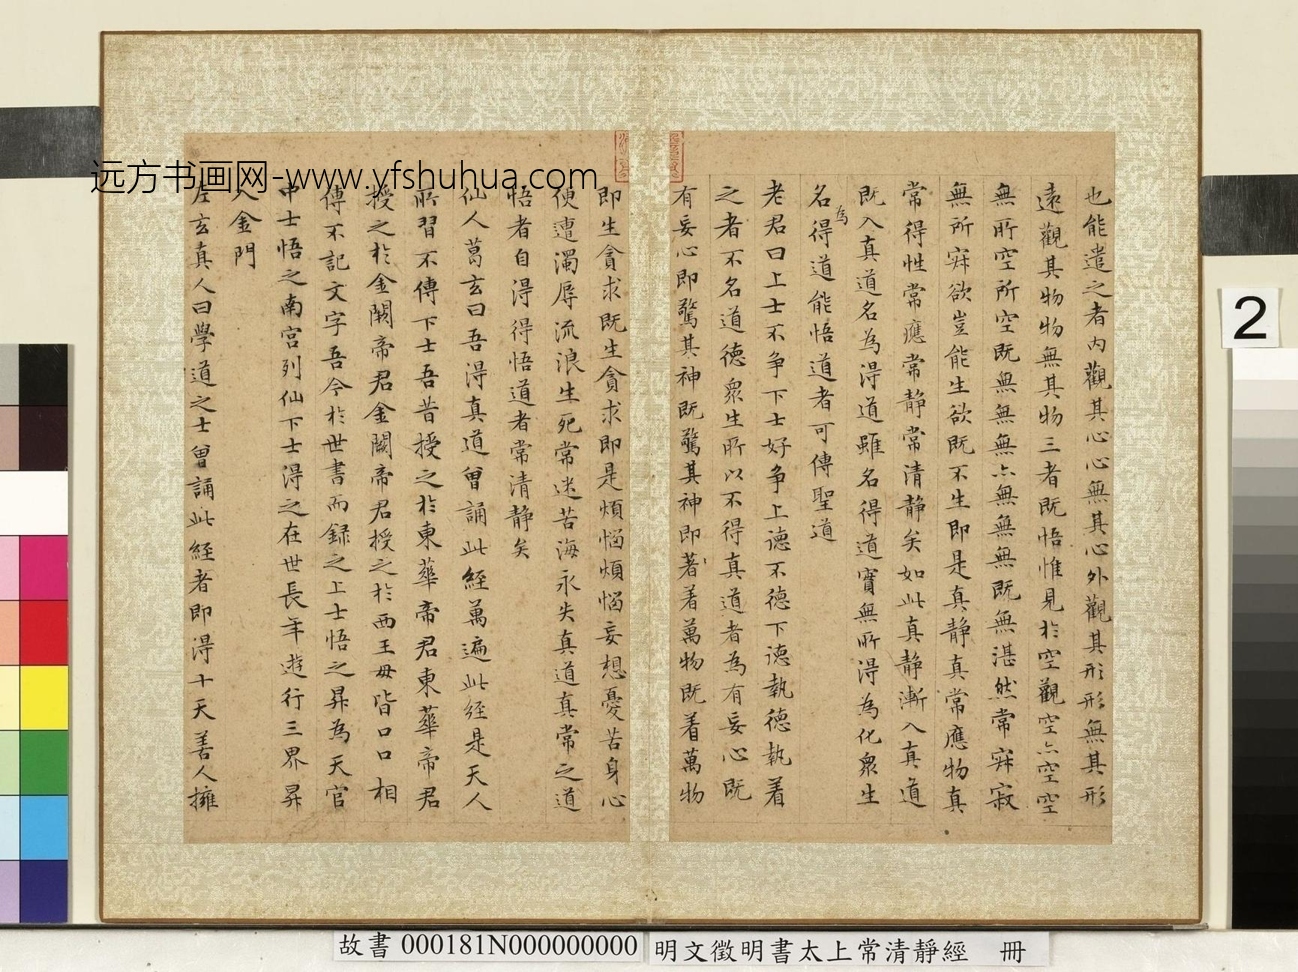 远方书画网-www.yfshuhua.com
也能遣之者内觀其心心無其心外觀其形形無其形
遠觀其物物無其物三者既悟惟見於空觀空亦空空
無所空所空既無無無亦無無無既無湛然常寂寂
無所寂欲豈能生欲既不生即是真静真常應物真
常得性常應常静常清静矣如此真静漸入真道
既入真道名為得道雖名得道實無所得為化衆生
名為得道能悟道者可傳聖道
老君曰上士不争下士好争上德不德下德執德執着
之者不名道德衆生所以不得真道者為有妄心既
有妄心即驚其神既驚其神即著着萬物既着萬物
即生貪求既生貪求即是煩惱煩惱妄想憂苦身心
便遭濁辱流浪生死常迷苦海永失真道真常之道
悟者自得得悟道者常清静矣
仙人葛玄曰吾得真道曾誦此經萬遍此經是天人
所習不傳下士吾昔授之於東華帝君東華帝君
授之於金闕帝君金闕帝君授之於西王母皆口口相
傳不記文字吾今於世書而録之上士悟之昇為天官
中士悟之南宫列仙下士得之在世長年遊行三界昇
入金門
左玄真人曰學道之士曾誦此經者即得十天善人擁
2
故書 000181N000000000
明文徵明書太上常清靜經 冊